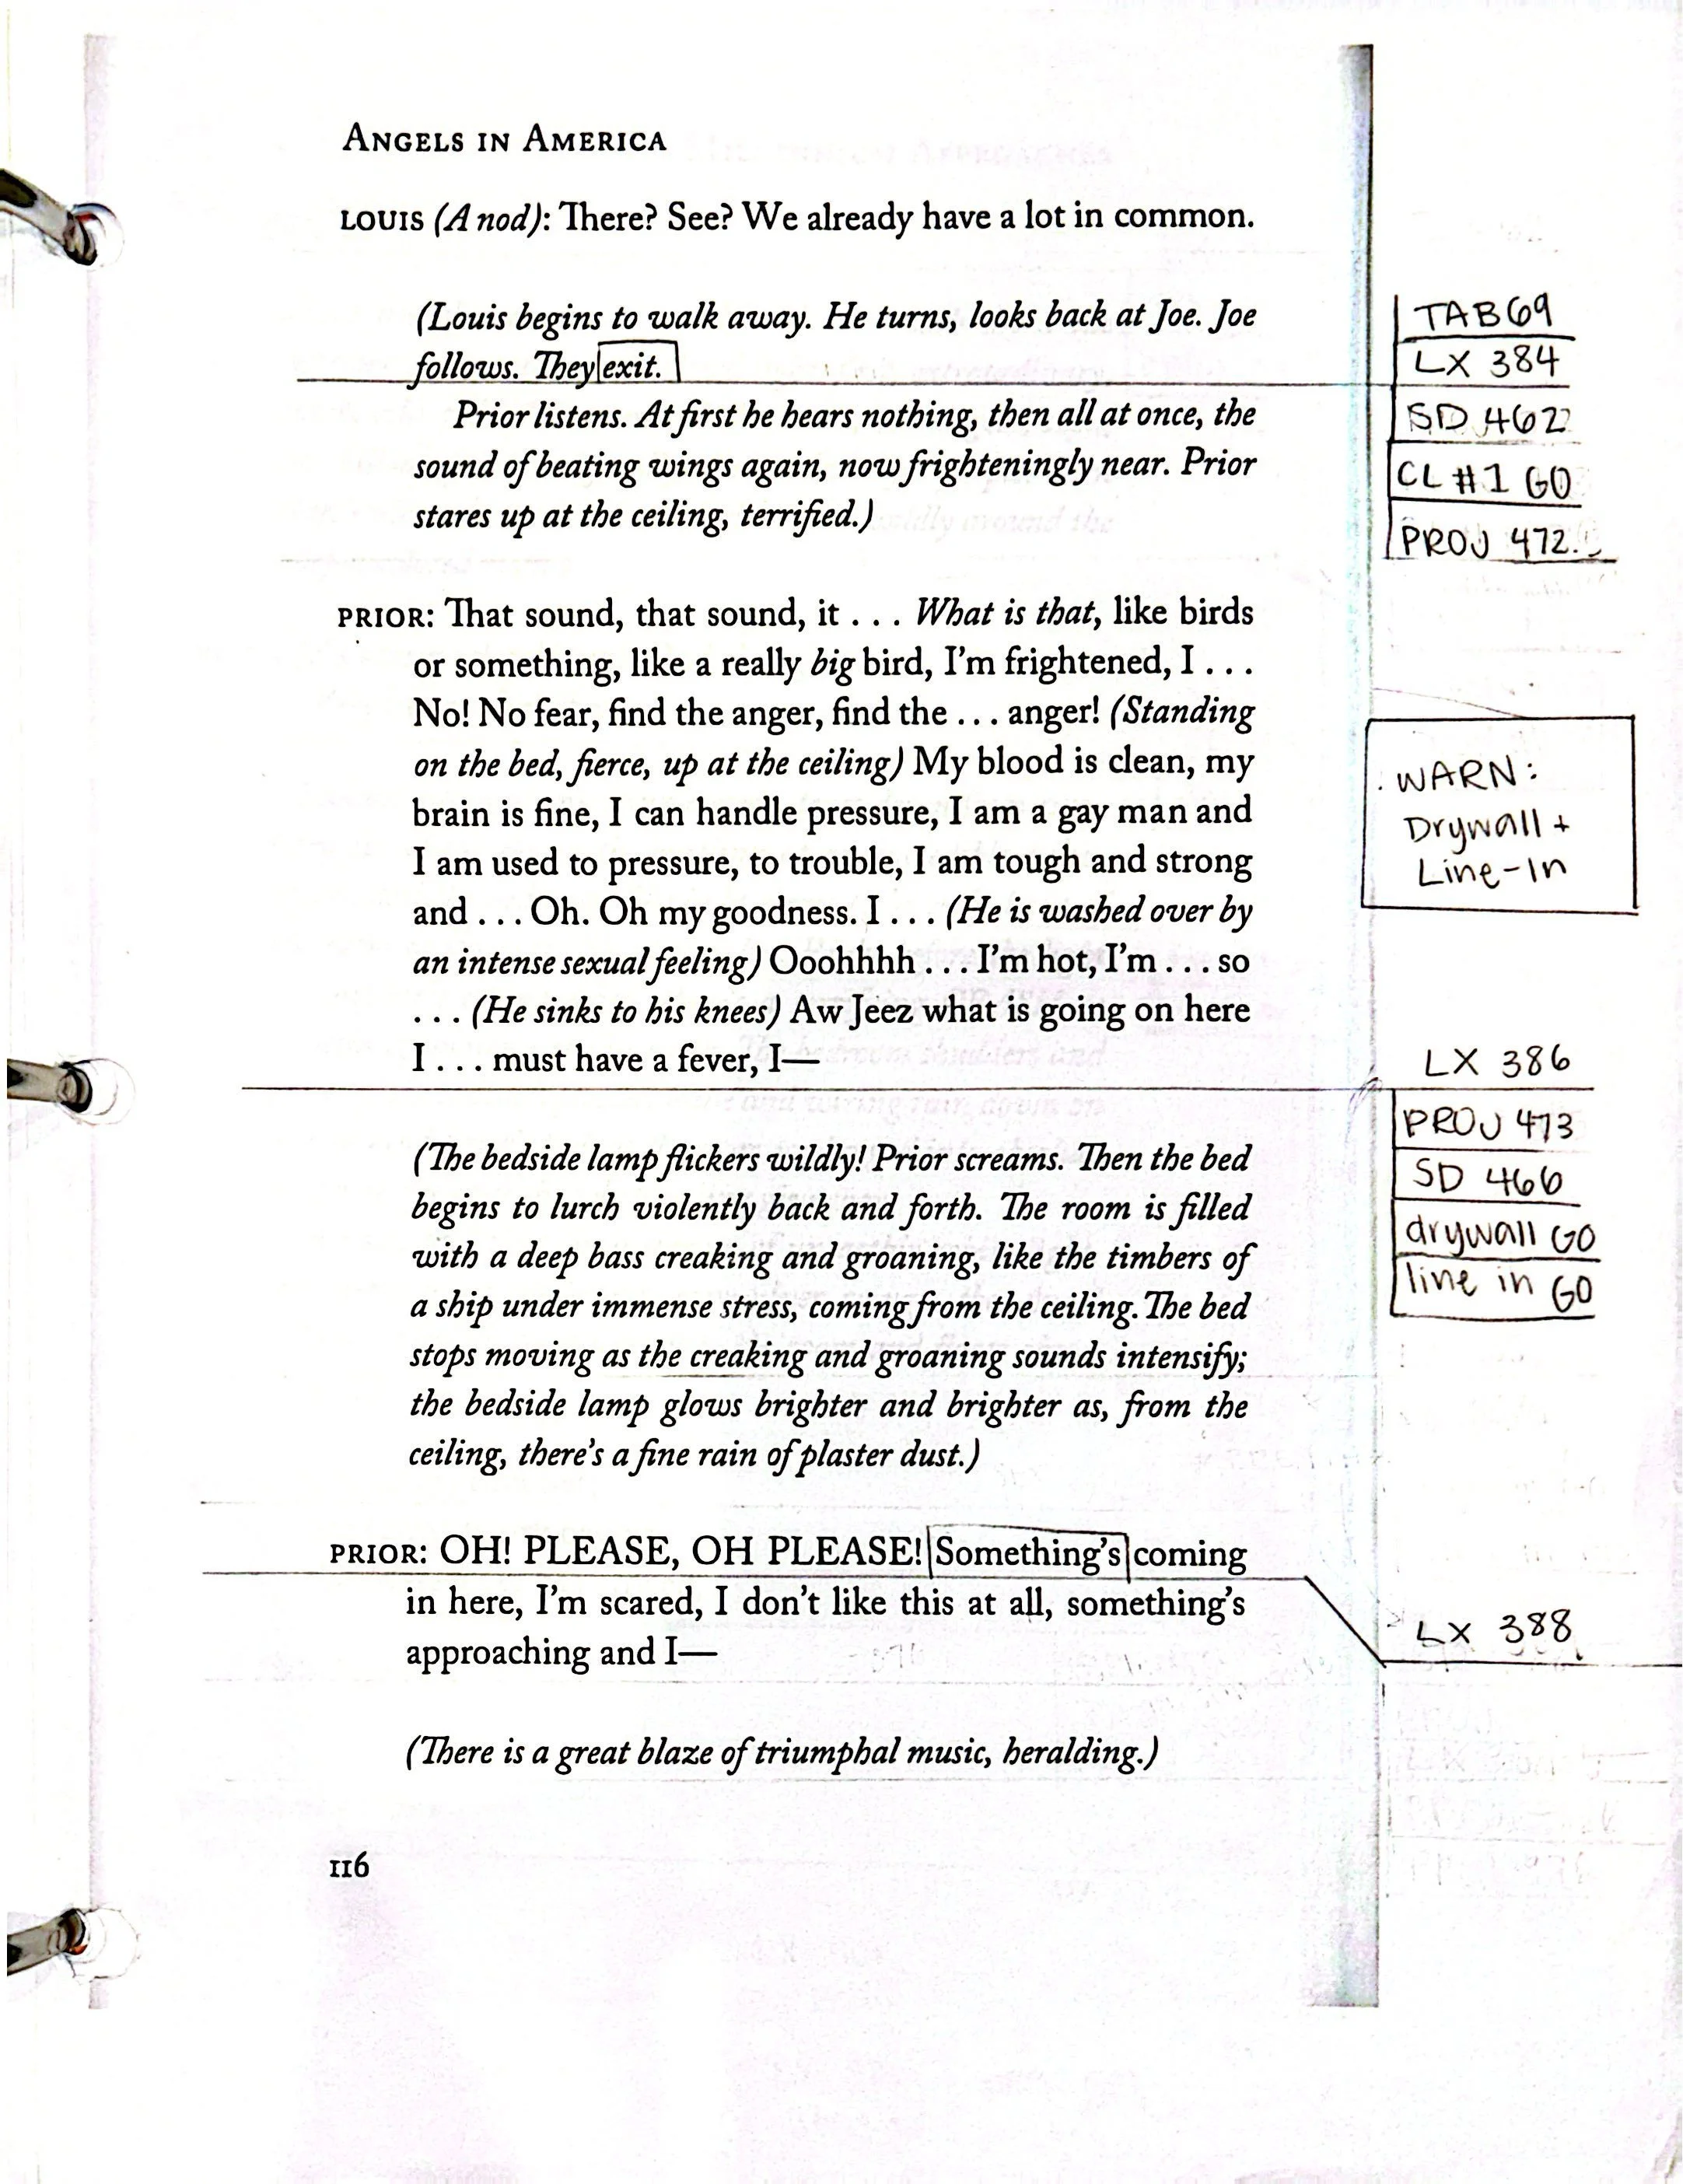 ANGELS IN AMERICA
LOUIS (A nod): There? See? We already have a lot in common.
(Louis begins to walk away. He turns, looks back at Joe. Joe
TAB 69
follows. They exit.
LX 384
Prior listens. At first he hears nothing, then all at once, the
SD 462
sound of beating wings again, now frighteningly near. Prior
CL #1 GO
stares up at the ceiling, terrified.)
PROJ 472
PRIOR: That sound, that sound, it . . . What is that, like birds
or something, like a really big bird, I'm frightened, I . . .
No! No fear, find the . . . anger, find the . . . anger! (Standing
on the bed, fierce, up at the ceiling) My blood is clean, my
WARN:
brain is fine, I can handle pressure, I am a gay man and
Drywall +
I am used to pressure, to trouble, I am tough and strong
Line-In
and . . . Oh. Oh my goodness. I . . . (He is washed over by
an intense sexual feeling) Ooohhhh . . . I'm hot, I'm . . . so
. . . (He sinks to his knees) Aw Jeez what is going on here
I . . . must have a fever, I—
LX 386
PROJ 473
(The bedside lamp flickers wildly! Prior screams. Then the bed
SD 466
begins to lurch violently back and forth. The room is filled
drywall GO
with a deep bass creaking and groaning, like the timbers of
line in GO
a ship under immense stress, coming from the ceiling. The bed
stops moving as the creaking and groaning sounds intensify;
the bedside lamp glows brighter and brighter as, from the
ceiling, there's a fine rain of plaster dust.)
PRIOR: OH! PLEASE, OH PLEASE! Something's coming
in here, I'm scared, I don't like this at all, something's
LX 388
approaching and I—
(There is a great blaze of triumphal music, heralding.)
116